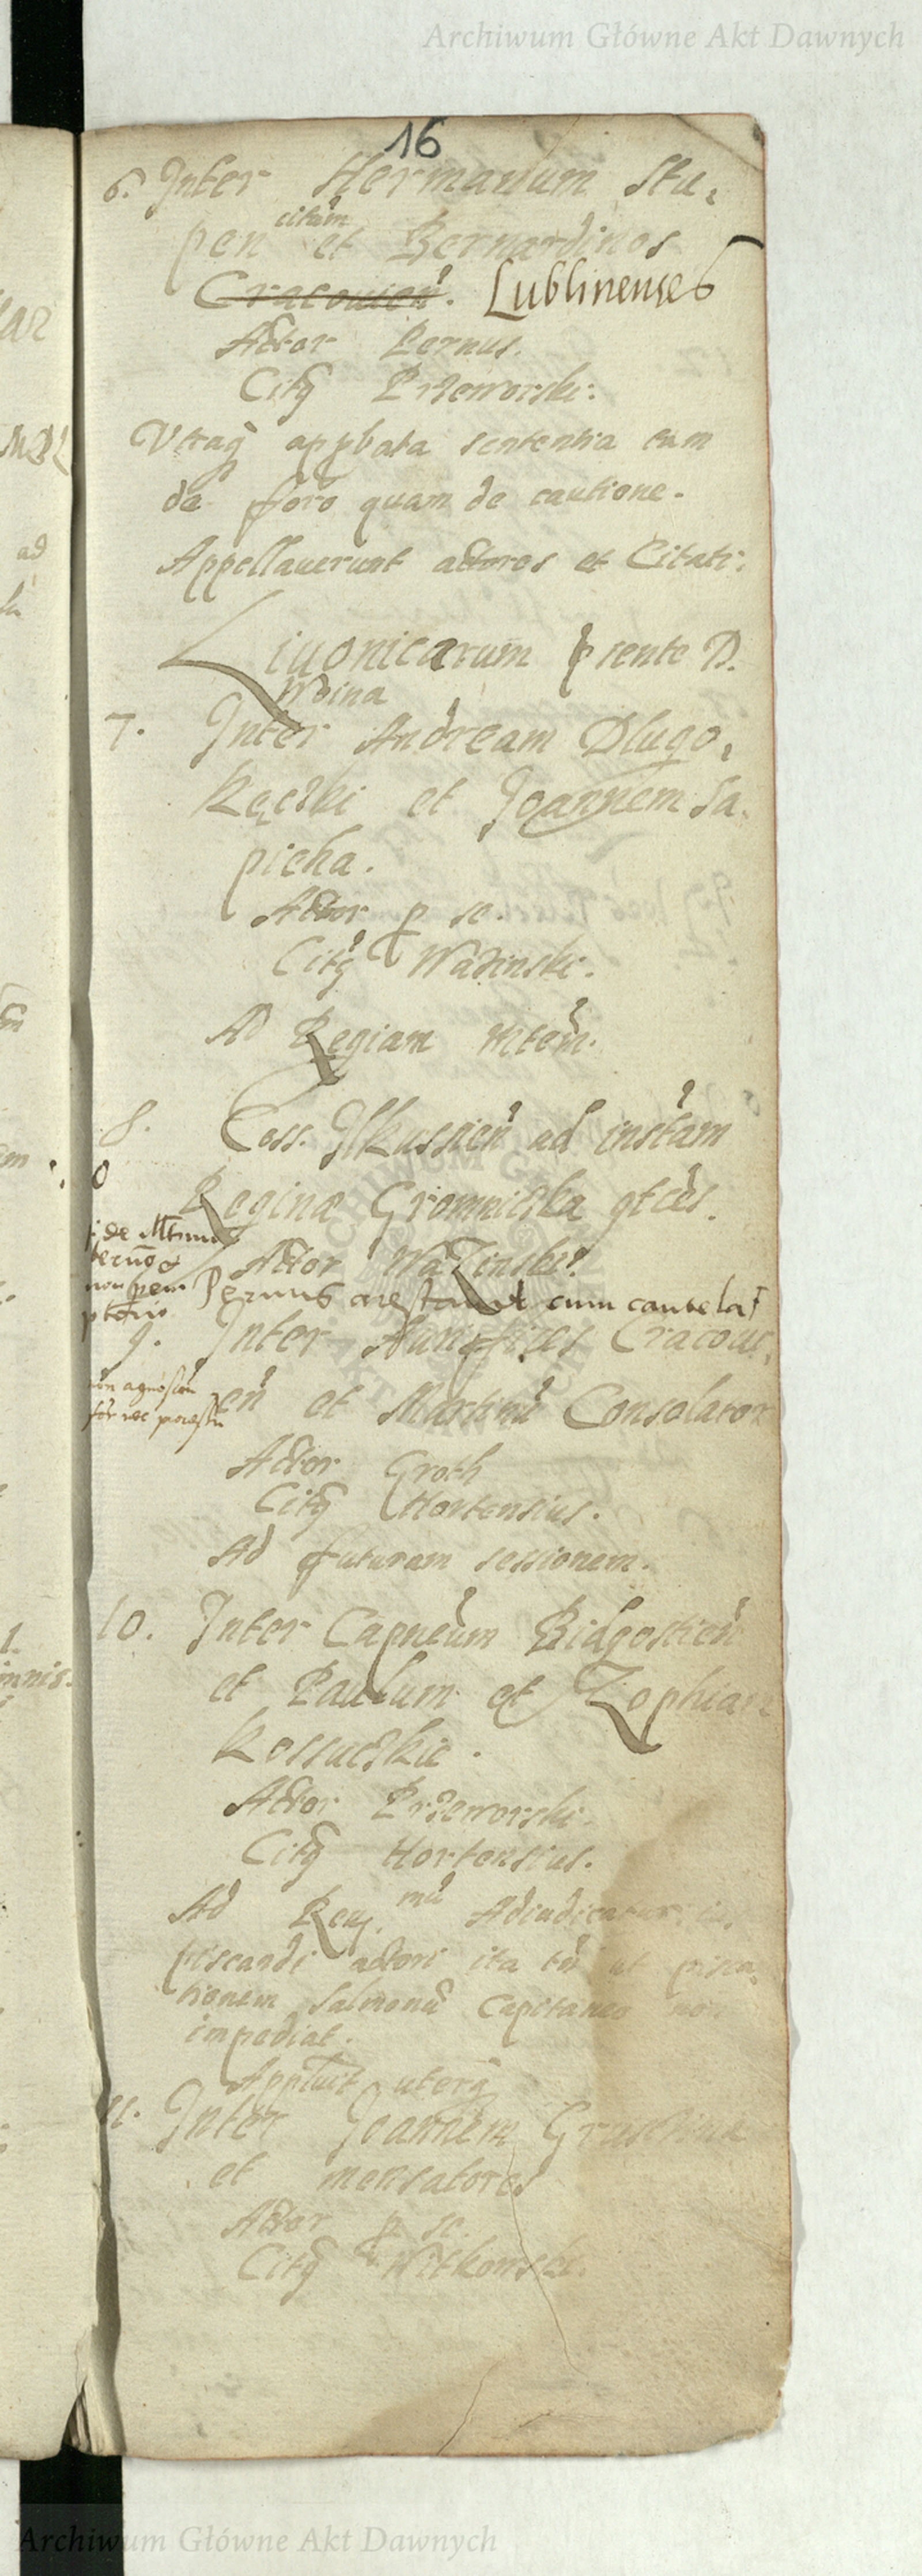 Archiwum Główne Akt Dawnych
16
6. Inter Hermanum Stu,
citãm
pen et Bernardinos
Cracouien̄. Lublinenses
Actor Pernus.
Citq Przeworski.
Vtraq appbata sententia tam
de foro quam de cautione.
Appellauerunt actores et Citati.
Liuonicarum p̱sente D.
Woina
7. Inter Andream Dlugo,
kęczki et Joannem Sa.
pieha.
Actor p se.
Citq Wadinski.
Ad Regiam Mtem.
8. Coss. Ilkussien̄ ad instam
Reginæ Gromniczka
Actor Wazinski
Pernus cum cautela
9. Inter Cracoui,
en̄ et Martinū Consolator
non agnoscu
Actor Groth
Citq Hortensius.
Ad futuram sessionem.
10. Inter Capneum Bidgostien̄
et Paulum et Zophiam
Kossuczkie.
Actor Przeworski.
Citq Hortensius.
Ad Reg. mū Adiudicatur
piscandi actori ita tn̄ ut pisca,
tionem Salmonū Capitaneo non
impediat.
Appluit uterq
11. Inter Joannem
et mensatores
Actor p se.
Citq Witkowski.
Archiwum Główne Akt Dawnych